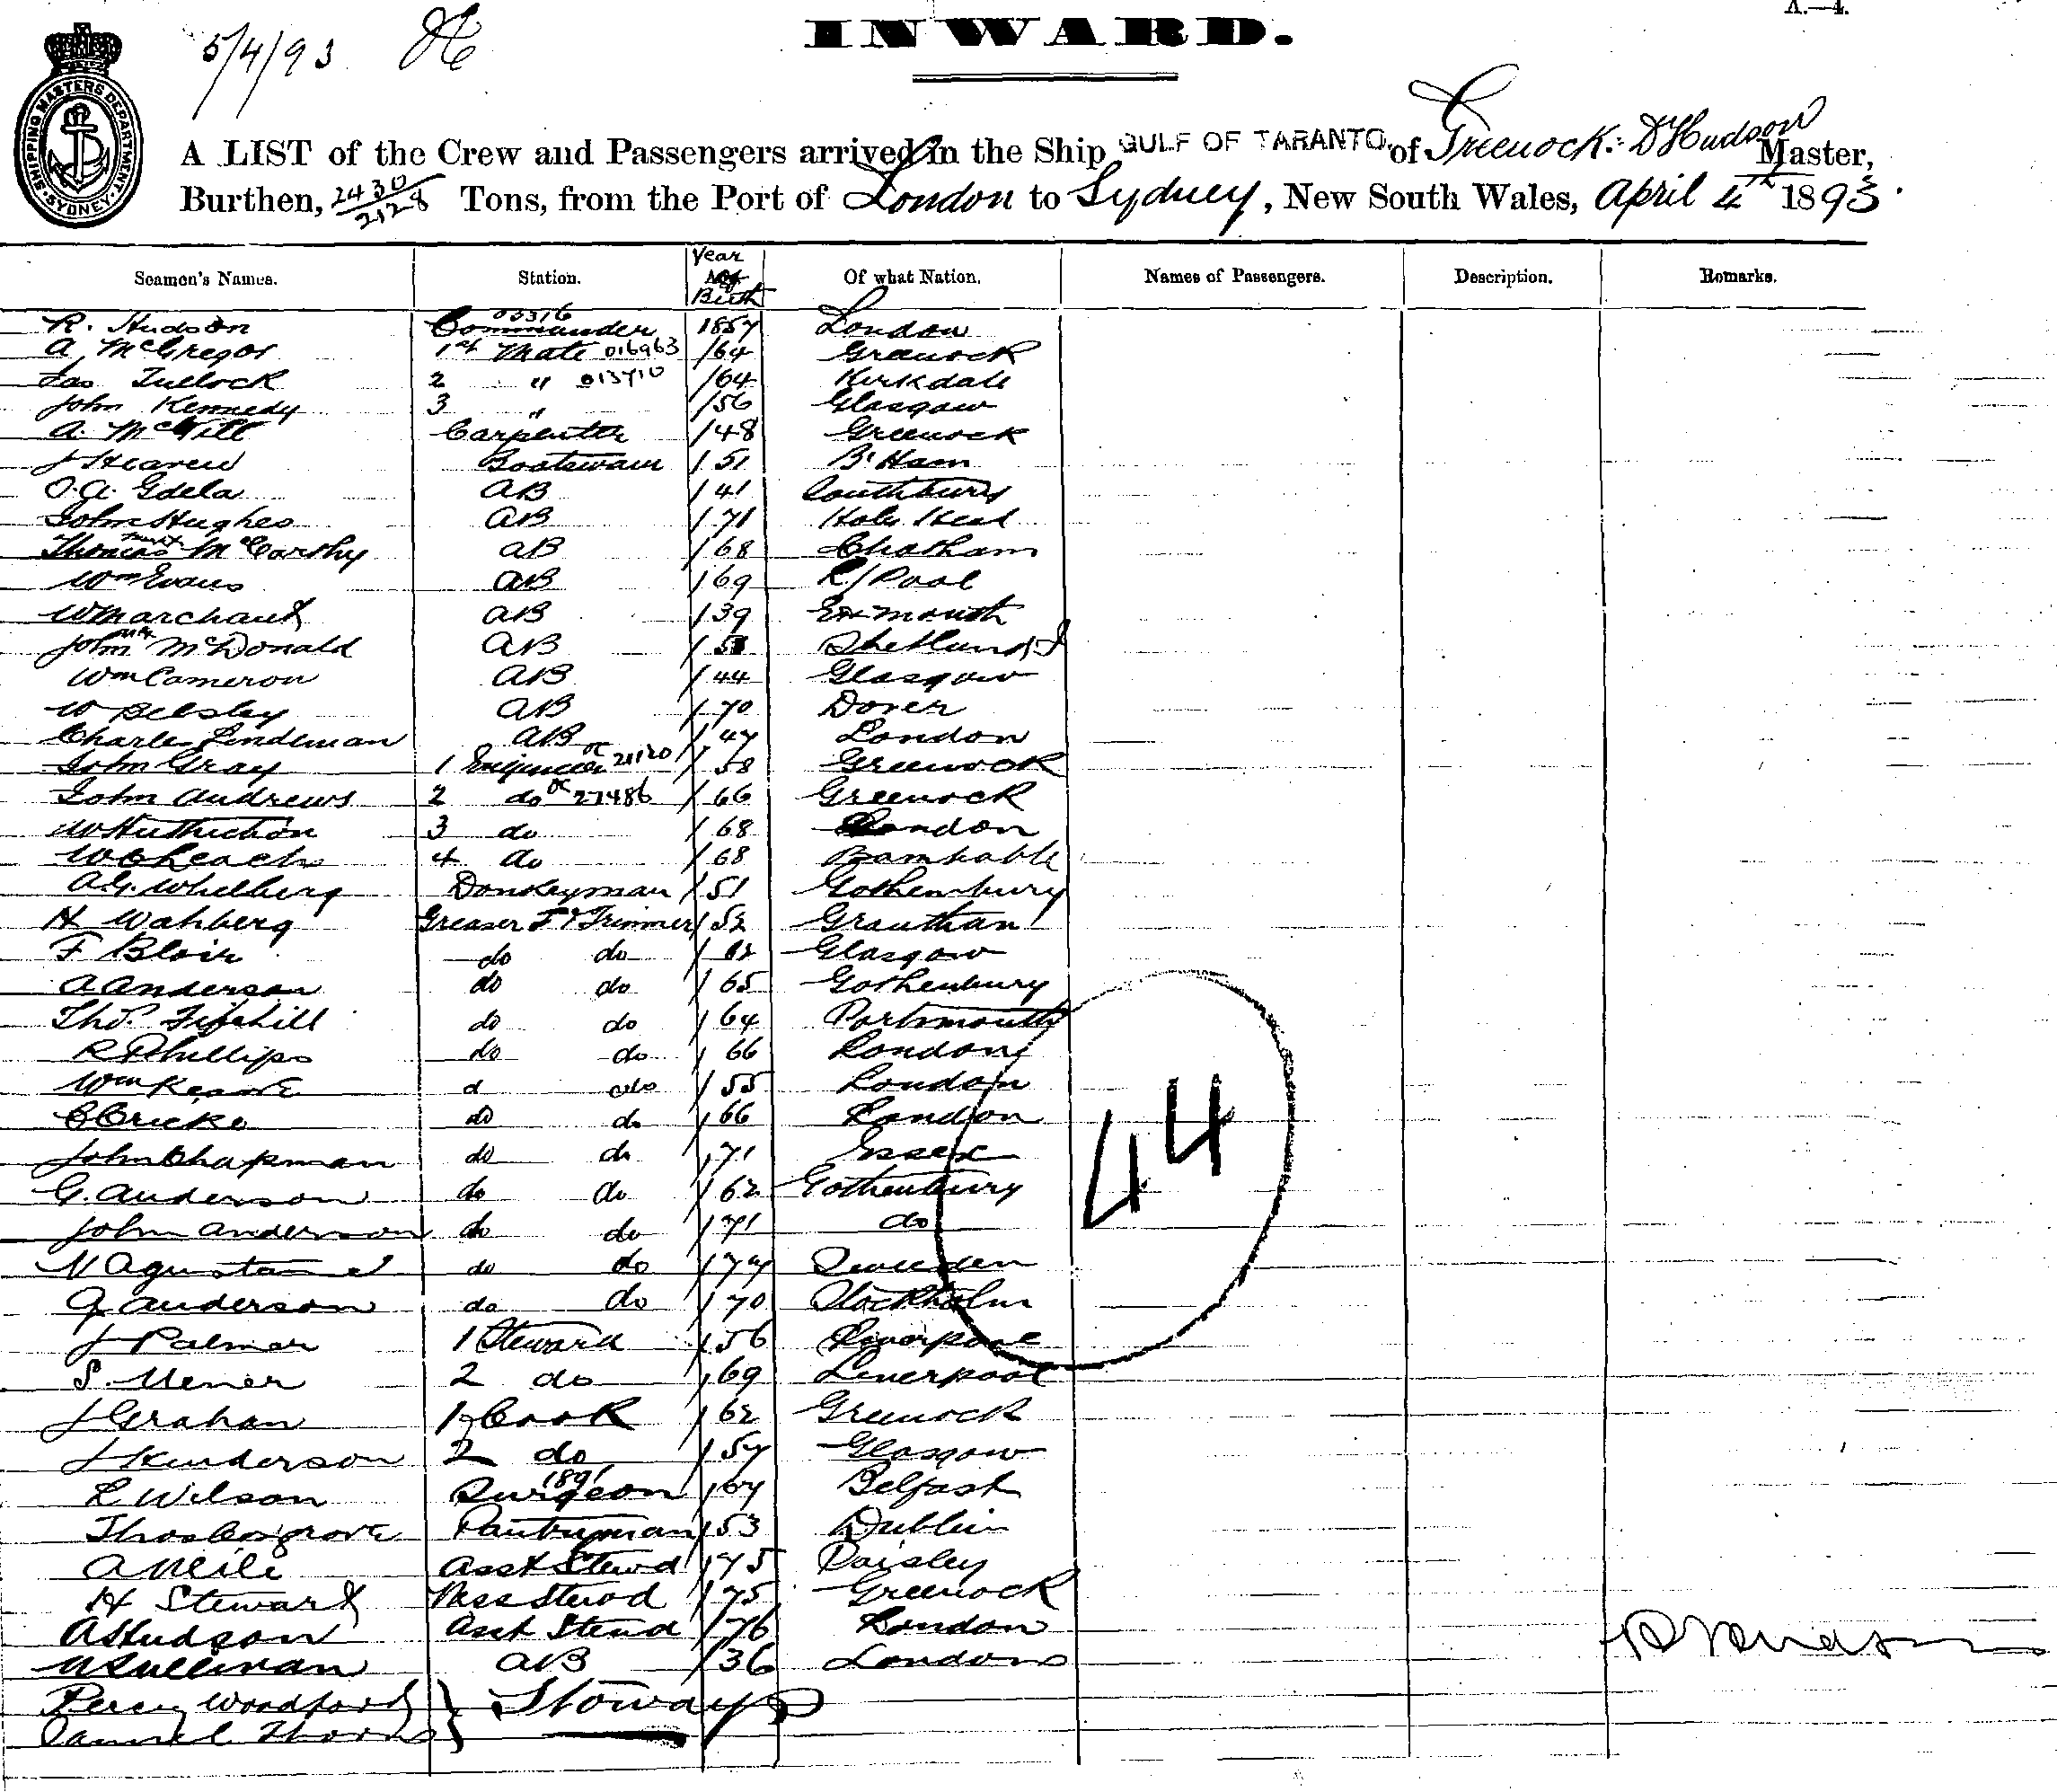 A.—4.
5/4/93
INWARD.
SHIPPING MASTERS DEPARTMENT SYDNEY
A LIST of the Crew and Passengers arrived in the Ship GULF OF TARANTO of Greenock: Hudson Master,
Burthen, 2430/2128 Tons, from the Port of London to Sydney, New South Wales, April 4th 1893.
Seamen's Names. Station. Year of Birth Of what Nation. Names of Passengers. Description. Remarks.
R. Hudson Commander 1857 London
A McGregor 1st Mate 016963 /64 Greenock
Jas Tullock 2 " 013710 /64 Kirkdale
John Kennedy 3 " /56 Glasgow
A. McGill Carpenter /48 Greenock
J Hearen Boatswain /51 B'Ham
O.A. Gdela AB /41
John Hughes AB /71 Holy Head
Thomas McCarthy AB /68 Chatham
Wm Evans AB /69 L/Pool
W Marchant AB /39 Exmouth
John McDonald AB Shetland I
Wm Cameron AB /44 Glasgow
W Belsley AB /70 Dover
Charles Lindeman AB /47 London
John Gray 1 Engineer 21120 /58 Greenock
John Andrews 2 do 27486 /66 Greenock
W Huthichon 3 do /68 London
W C Leach 4 do /68
A.G. Whelberg Donkeyman /51 Gothenburg
H Wahberg Greaser F & Trimmer /52 Granthan
F Blair do do /62 Glasgow
A Anderson do do /65 Gothenburg
Thos. Fifehill do do /64 Portsmouth
R Phillips do do /66 London
Wm Keane d do /55 London
C Cricke do do /66 London
John Chapman do do /71 Essex
G. Anderson do do /62 Gothenburg
John Anderson do do /71 do
do do /74 Sweeden
G Anderson do do /70 Stockholm
J Palmer 1 Steward /56 Liverpool
S. Mener 2 do /69 Liverpool
J Grahan 1 Cook /62 Greenock
J Henderson 2 do /54 Glasgow
L Wilson Surgeon 1891 /64 Belfast
Thos Cosgrove Pantryman /53 Dublin
A Neile Asst Stewd /75 Paisley
H Stewart Mess Stewd /75 Greenock
A Hudson Asst Stewd /76 London
Sullivan AB /36 London
Percy Woodford } Stoways
Samuel Thorns
44
R Hudson